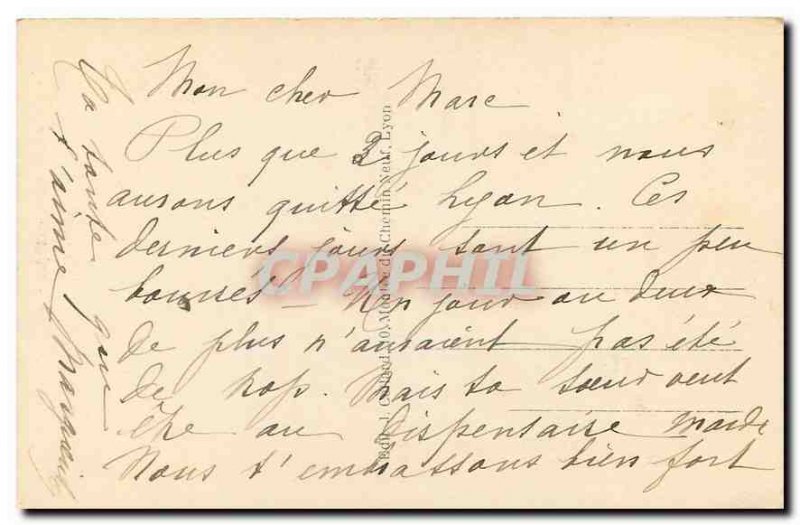 Mon cher Marc
Plus que 2 jours et nous
aurons quitté Lyon. Ces
derniers jours sont un peu
bourrés – Un jour ou deux
de plus n'auraient pas été
de trop. Mais ta soeur veut
être au dispensaire mardi
Nous t'embrassons bien fort
Ta tante qui
t'aime
Edit. J. Cellard, 10, Montée du Chemin Neuf, Lyon
CPAPHIL